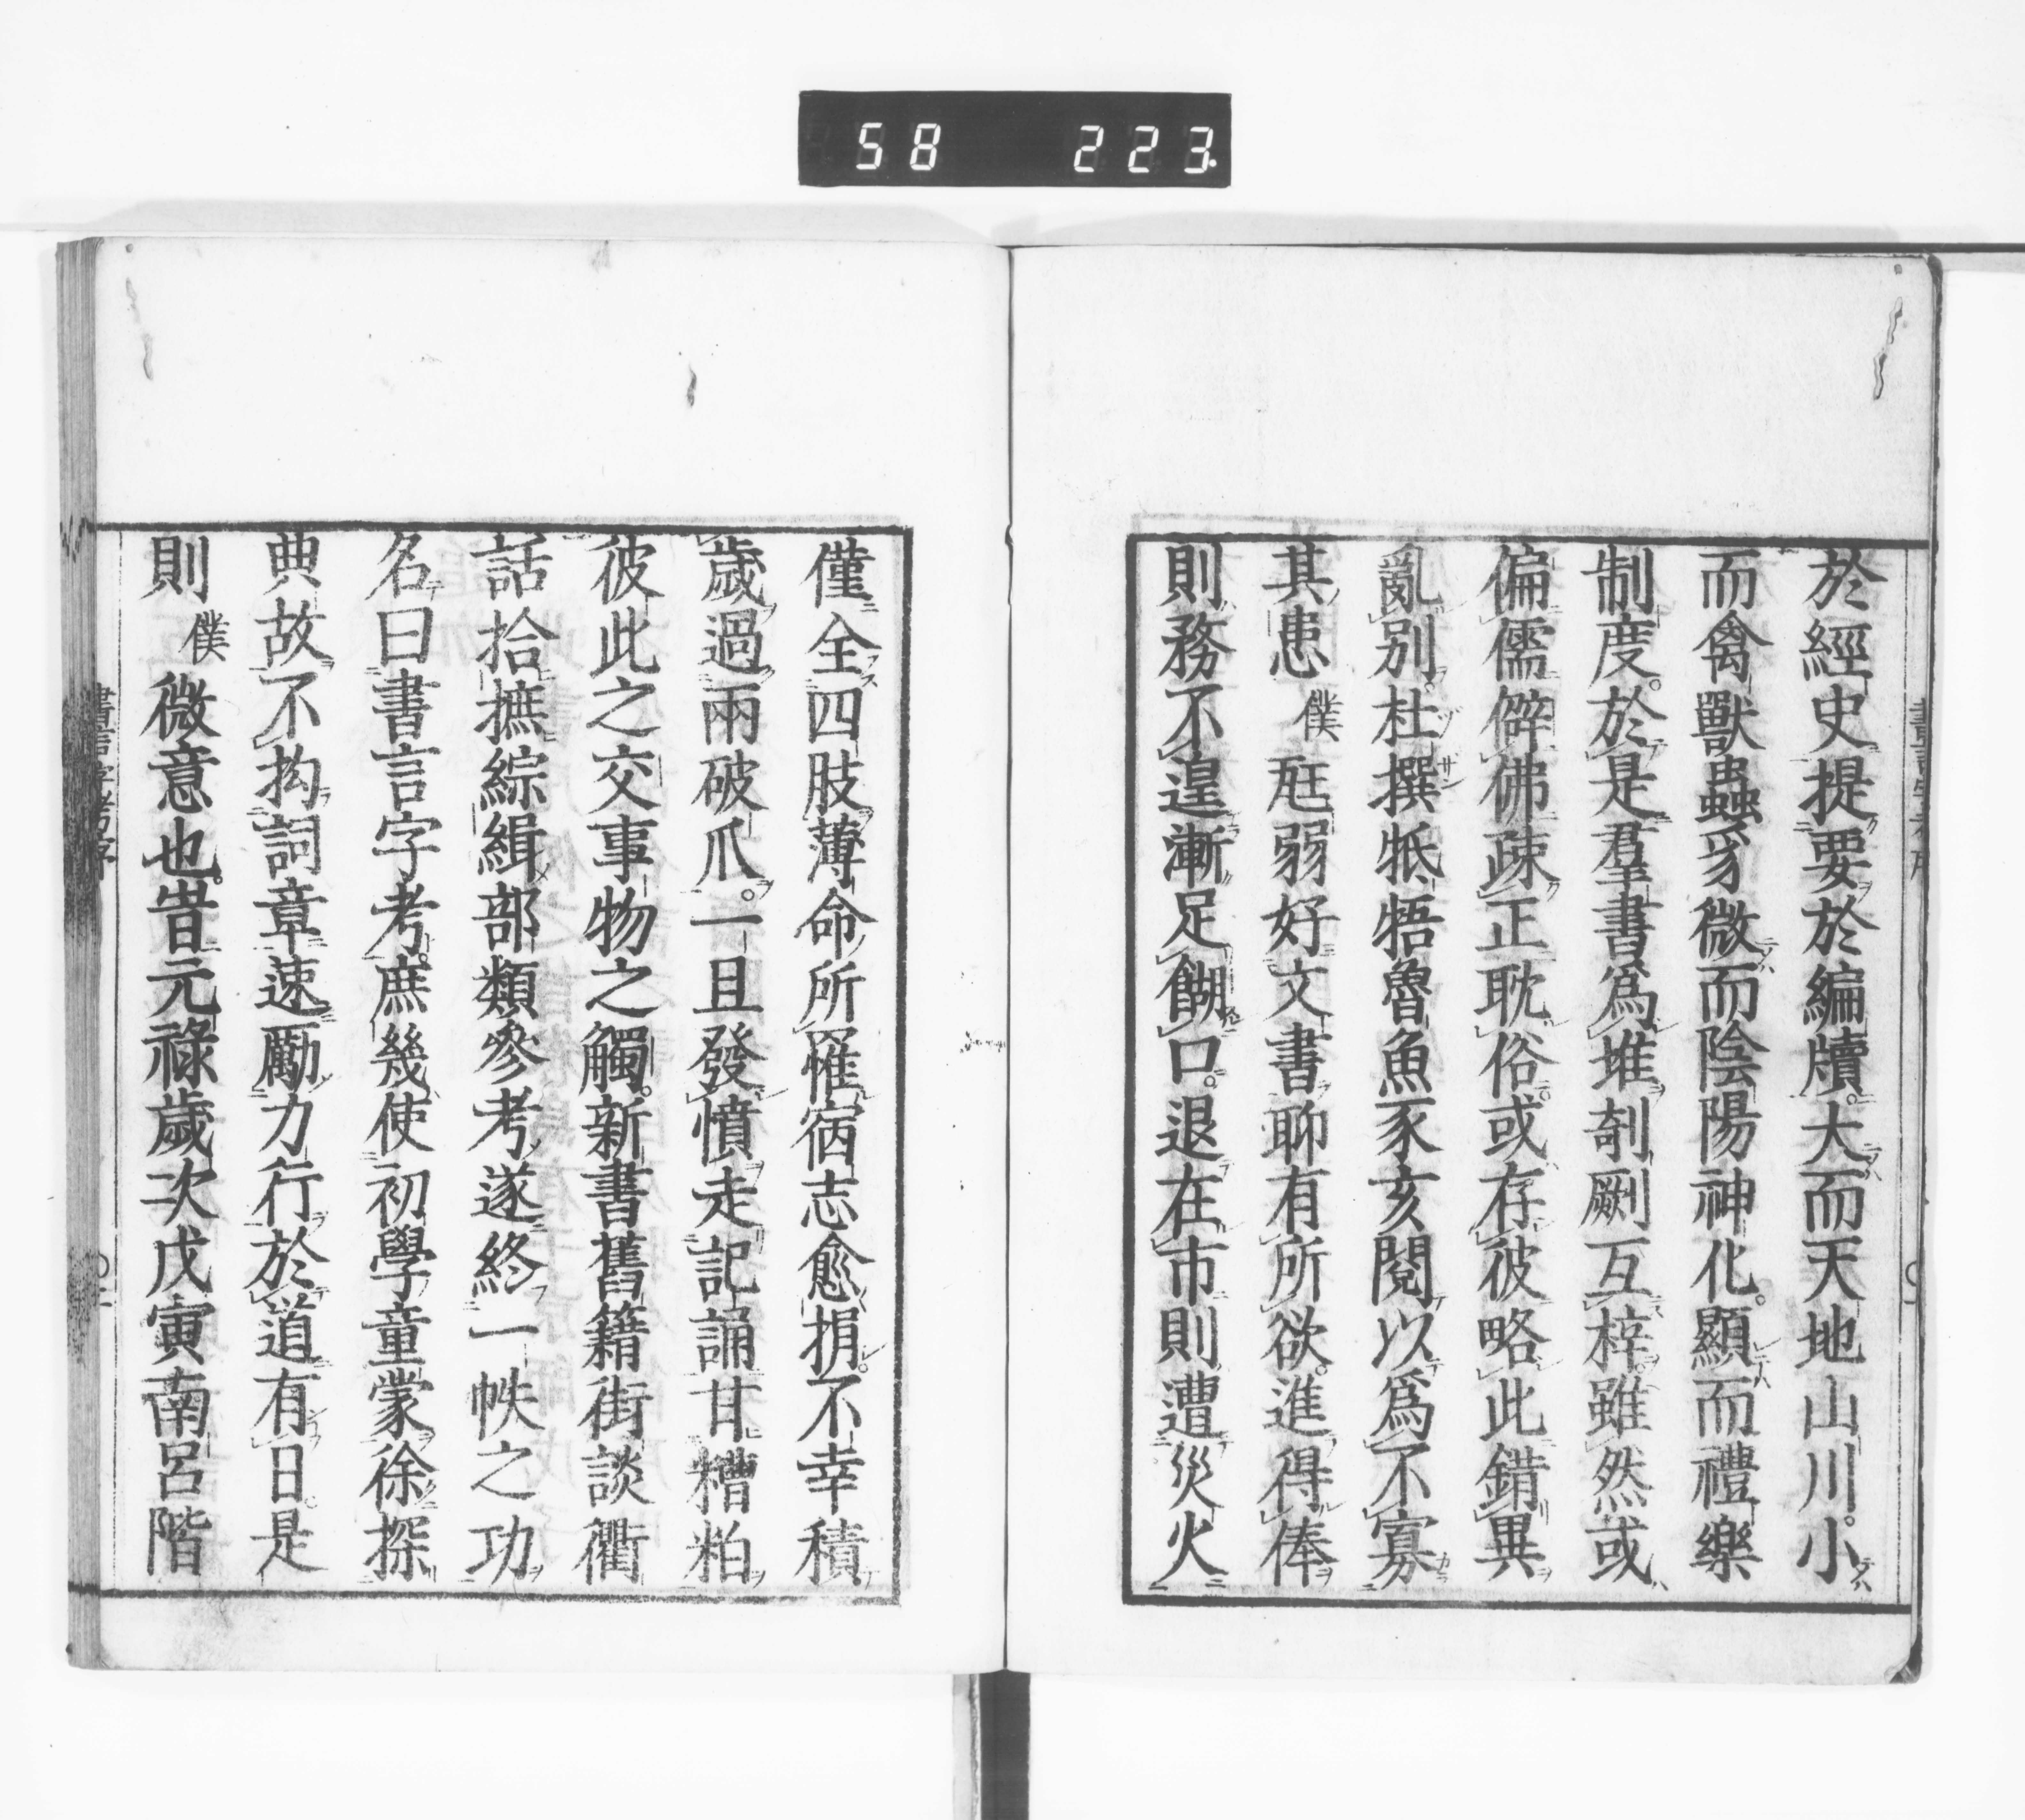 58 223
於經史提要於編牘。大而天地山川。小
而禽獸蟲豸微而陰陽神化。顯而禮樂
制度。於是羣書爲堆剞劂互梓。雖然或
偏儒僻佛疎正耽俗。或存彼略此錯異
亂別。杜撰牴牾魯魚豕亥閱以爲不寡
其患僕尫弱好文書聊有所欲。進得俸
則務不遑漸足餬口。退在市則遭災火
僅全四肢薄命所罹宿志愈捐。不幸積
歲過兩破爪。一旦發憤走記誦甘糟粕
彼此之交事物之觸。新書舊籍街談衢
話拾摭綜緝部類參考遂終一帙之功
名曰書言字考。庶幾使初學童蒙徐探
典故不拘詞章速勵力行於道有日。是
則僕微意也。旹元祿歲次戊寅南呂階
書言字考序